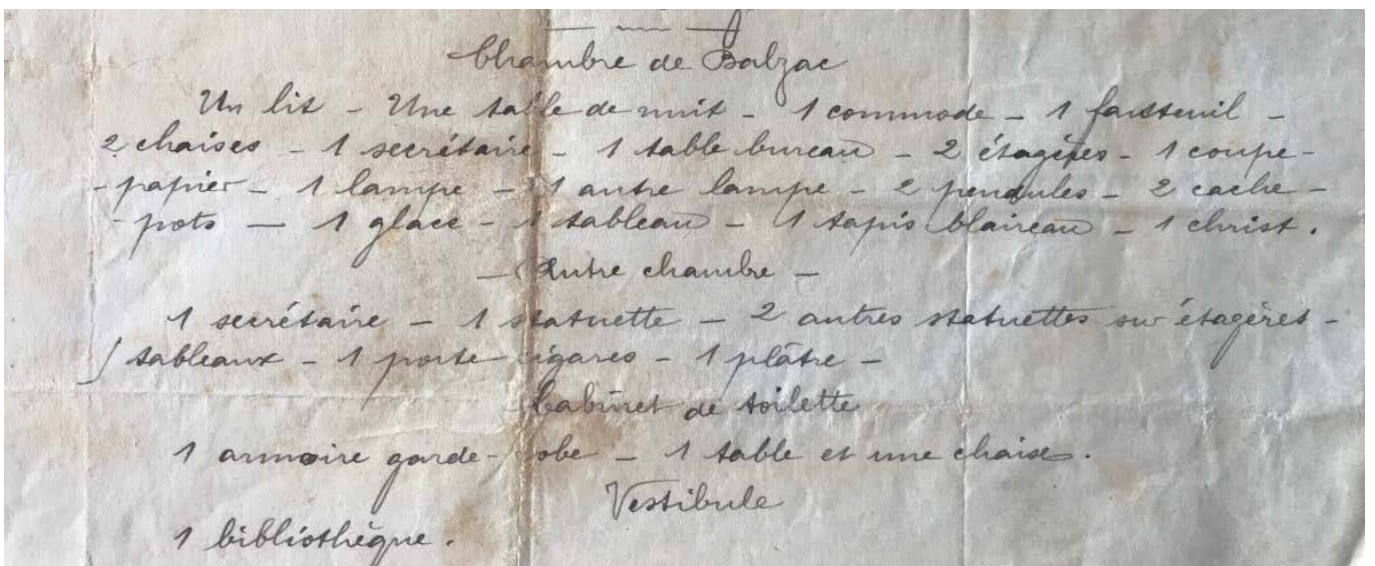 Chambre de Balzac
Un lit - Une table de nuit - 1 commode - 1 fauteuil -
2 chaises - 1 secrétaire - 1 table bureau - 2 étagères - 1 coupe-
- papier - 1 lampe - 1 autre lampe - 2 pendules - 2 cache-
- pots — 1 glace - 1 tableau - 1 tapis blaireau - 1 christ.
- Autre chambre -
1 secrétaire - 1 statuette - 2 autres statuettes sur étagères -
tableaux - 1 porte cigares - 1 plâtre -
Cabinet de toilette
1 armoire garde-robe - 1 table et une chaise.
Vestibule
1 bibliothèque.